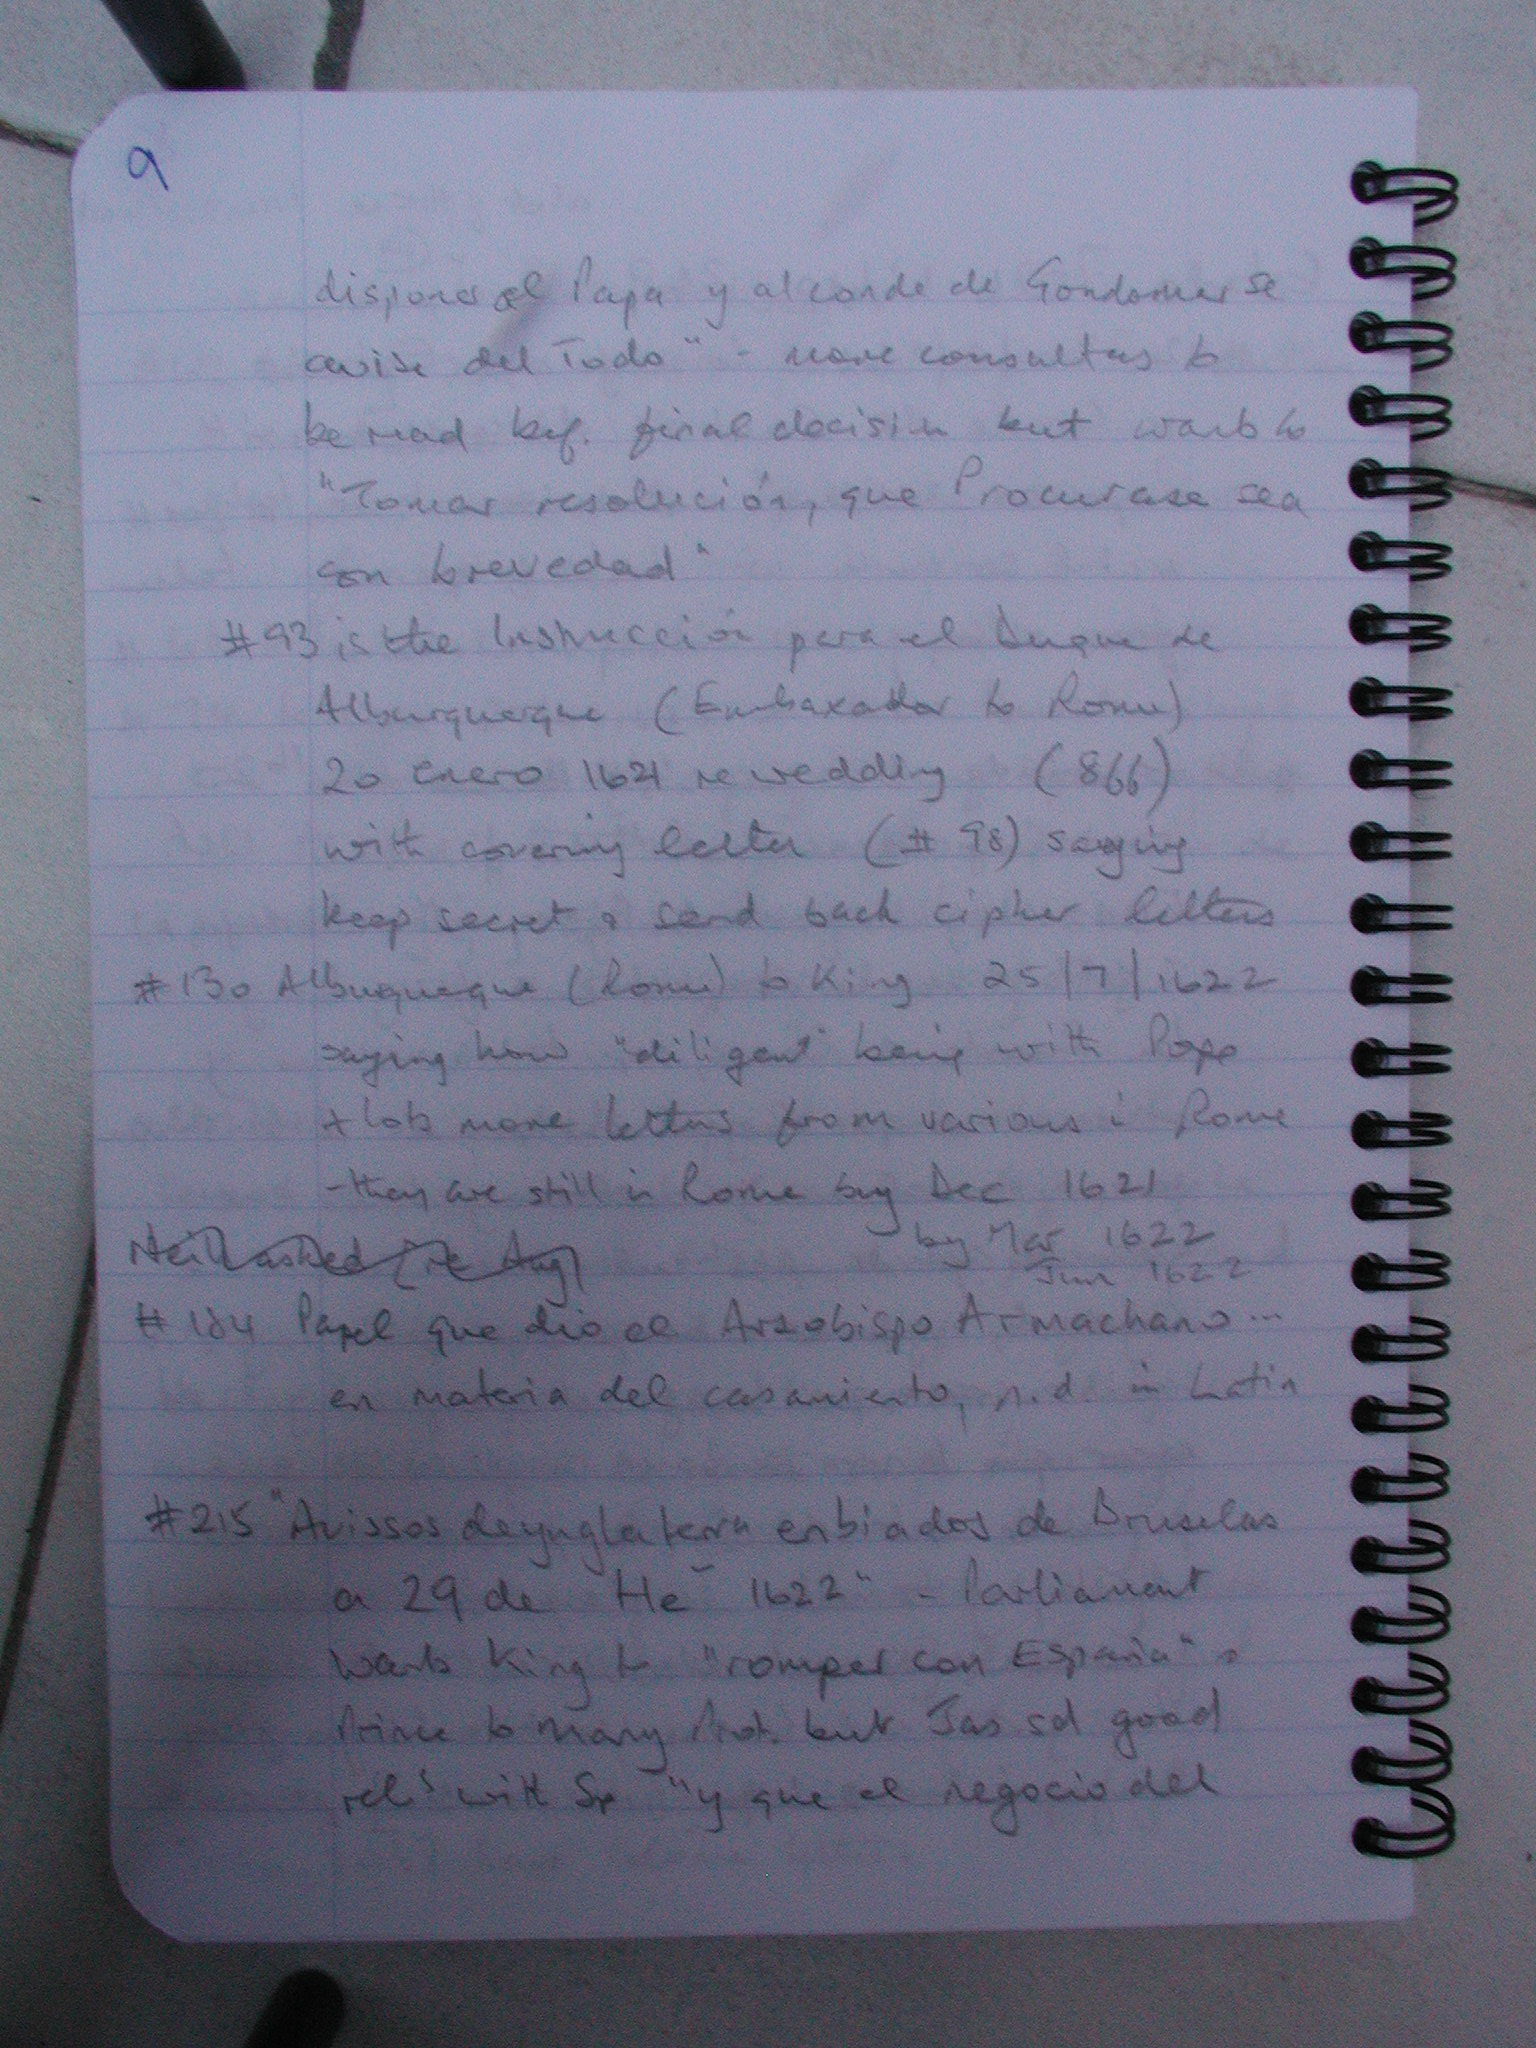 9
disponer el Papa y al conde de Gondomar se
avise del Todo" - more consultas to
be read bef. final decision but wants to
"Tomar resolución, que Procurase sea
con brevedad"
#93 is the Instrucción para el Duque de
Alburquerque (Embaxador to Rome)
20 enero 1621 re wedding (866)
with covering letter (# 98) saying
keep secret & send back cipher letters
#130 Alburquerque (Rome) to King 25/7/1622
saying how "diligent" being with Pope
+ lots more letters from various i Rome
- they are still in Rome by Dec 1621
by Mar 1622
Jun 1622
# 184 Papel que dio el Arzobispo Armachano...
en materia del casamiento, n.d. in Latin
#215 "Avissos deynglaterra enbiados de Bruselas
a 29 de He 1622" - Parliament
wants King to "romper con España" &
Prince to marry Prot. but Jas sd good
rels with Sp "y que el negocio del